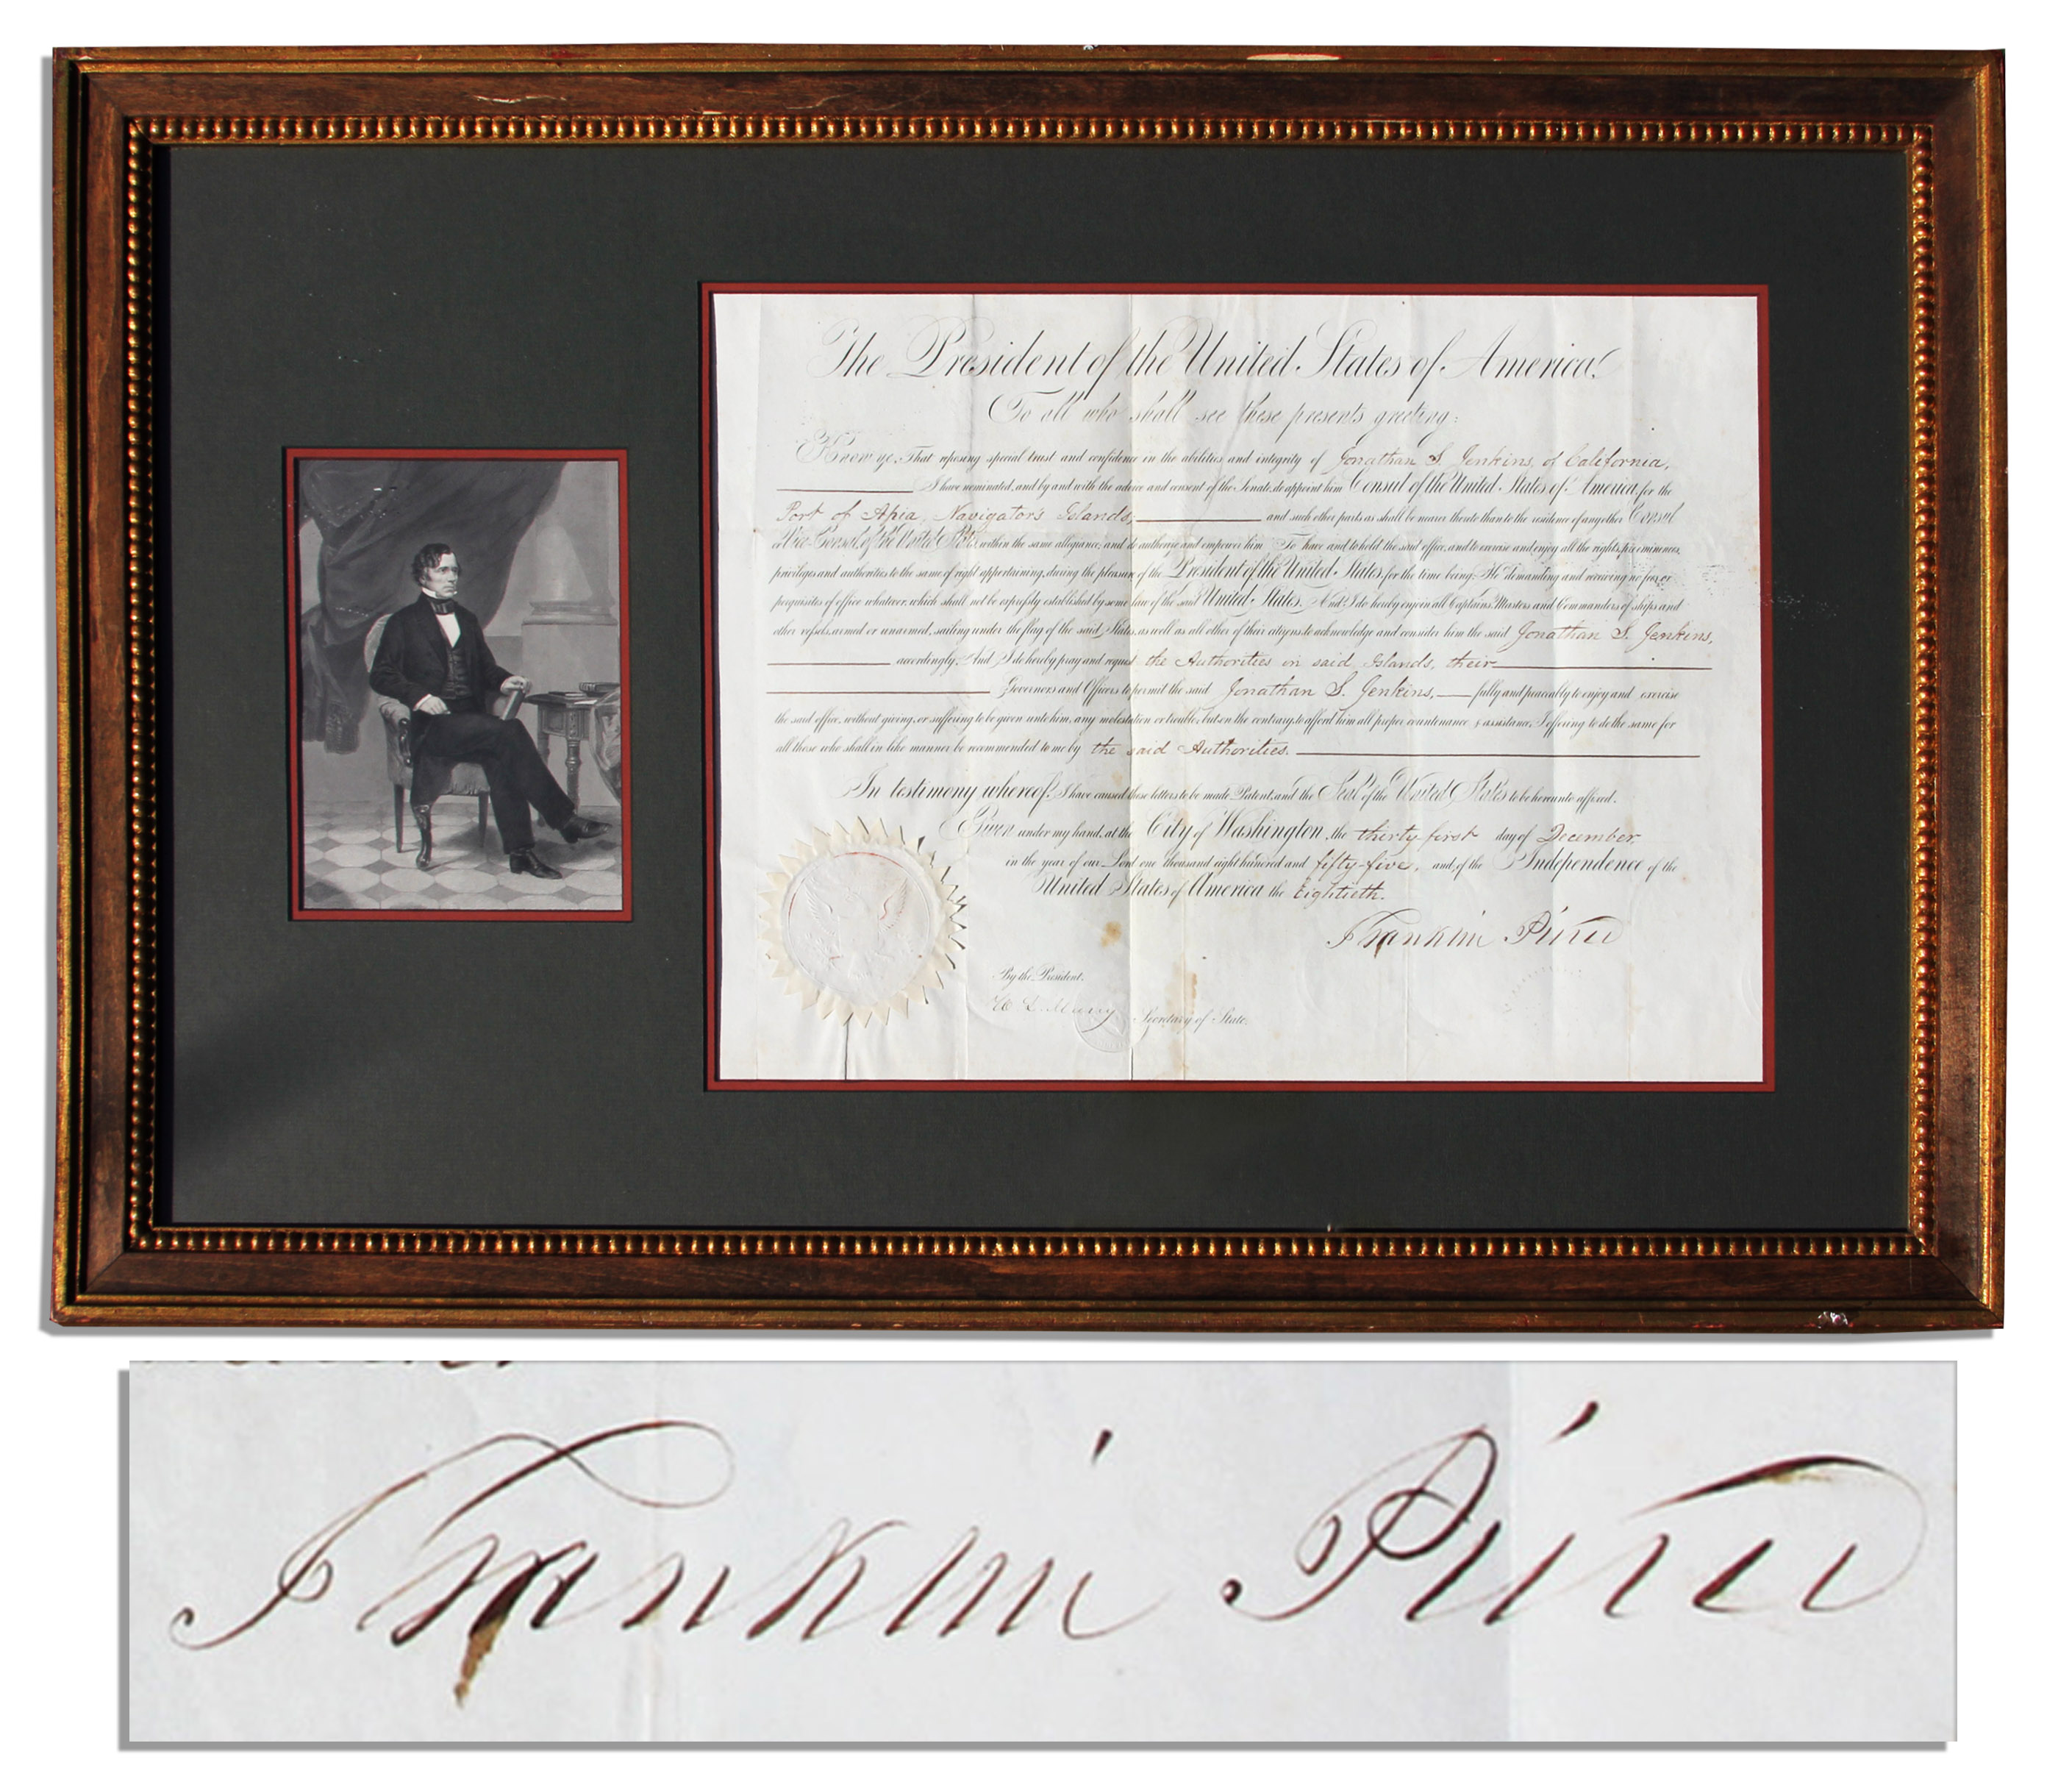 The President of the United States of America,
To all who shall see these presents greeting:
Know ye, That reposing special trust and confidence in the abilities and integrity of Jonathan S. Jenkins, of California,
I have nominated, and by and with the advice and consent of the Senate, do appoint him Consul of the United States of America, for the
Port of Apia, Navigator's Islands; and such other parts as shall be nearer thereto than to the residence of any other Consul
or Vice-Consul of the United States within the same allegiance; and do authorize and empower him To have and to hold the said office, and to exercise and enjoy all the rights, preeminences,
privileges and authorities to the same of right appertaining, during the pleasure of the President of the United States, for the time being: He demanding and receiving no fees or
perquisites of office whatever, which shall not be expressly established by some law of the said United States. And I do hereby enjoin all Captains, Masters and Commanders of ships and
other vessels, armed or unarmed, sailing under the flag of the said States, as well as all other of their citizens, to acknowledge and consider him the said Jonathan S. Jenkins,
accordingly; And I do hereby pray and request the Authorities on said Islands, their
Governors and Officers to permit the said Jonathan S. Jenkins, fully and peaceably to enjoy and exercise
the said office, without giving, or suffering to be given unto him, any molestation or trouble, but on the contrary to afford him all proper countenance & assistance, I offering to do the same for
all those who shall in like manner be recommended to me by the said Authorities.
In testimony whereof, I have caused these letters to be made Patent, and the Seal of the United States to be hereunto affixed.
Given under my hand, at the City of Washington, the thirty-first day of December,
in the year of our Lord one thousand eight hundred and fifty-five, and of the Independence of the
United States of America, the Eightieth.
Franklin Pierce
By the President.
W. L. Marcy Secretary of State.
Franklin Pierce